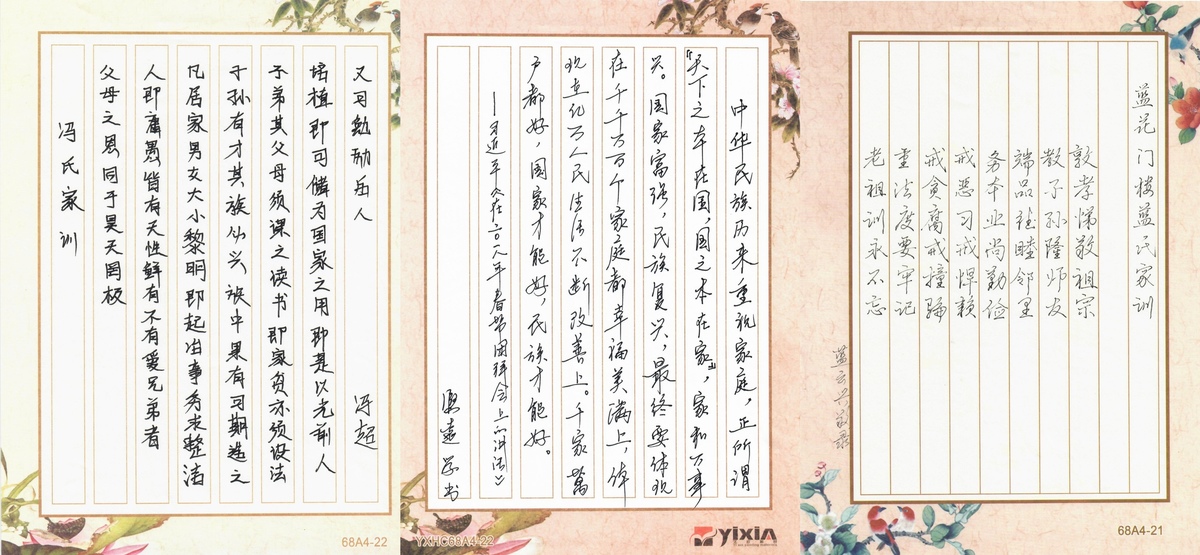 冯氏家训
父母之恩同于昊天罔极
人即庸愚皆有天性鲜有不有爱兄弟者
凡居家男女大小黎明即起由事务求整洁
子孙有才其族必兴族中果有可期造之
子弟其父母须课之读书即家贫亦须设法
培植即可储为国家之用即是以光前人
又习勉励后人
冯超
68A4-22
中华民族历来重视家庭，正所谓
“天下之本在国，国之本在家”，家和万事
兴。国家富强，民族复兴，最终要体现
在千千万万个家庭都幸福美满上，体
现在亿万人民生活不断改善上。千家萬
户都好，国家才能好，民族才能好。
—习近平《在二〇一九年春节团拜会上的讲话》
YXHC68A4-22
YIXIA
蓝花门楼蓝氏家训
敦孝悌敬祖宗
教子孙隆师友
端品德睦邻里
务本业尚勤俭
戒恶习戒悍赖
戒贪腐戒撞骗
重法度要牢记
老祖训永不忘
蓝云兴敬录
68A4-21